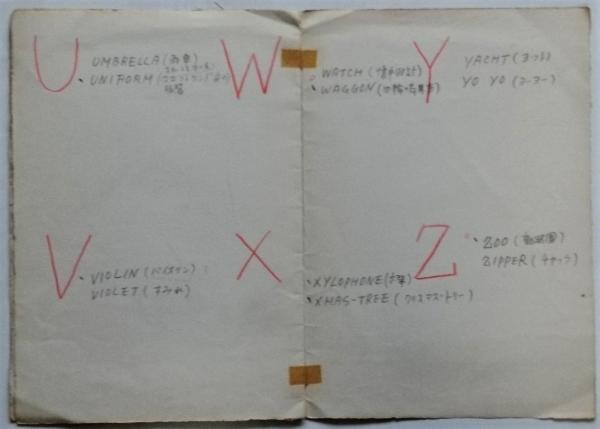 U
UMBRELLA (雨傘)
UNIFORM
V
VIOLIN (バイオリン)
VIOLET (すみれ)
W
WATCH (懐中時計)
WAGGON
X
XYLOPHONE (木琴)
XMAS-TREE (クリスマス・トリー)
Y
YACHT (ヨット)
YO YO (ヨーヨー)
Z
ZOO (動物園)
ZIPPER (チャック)